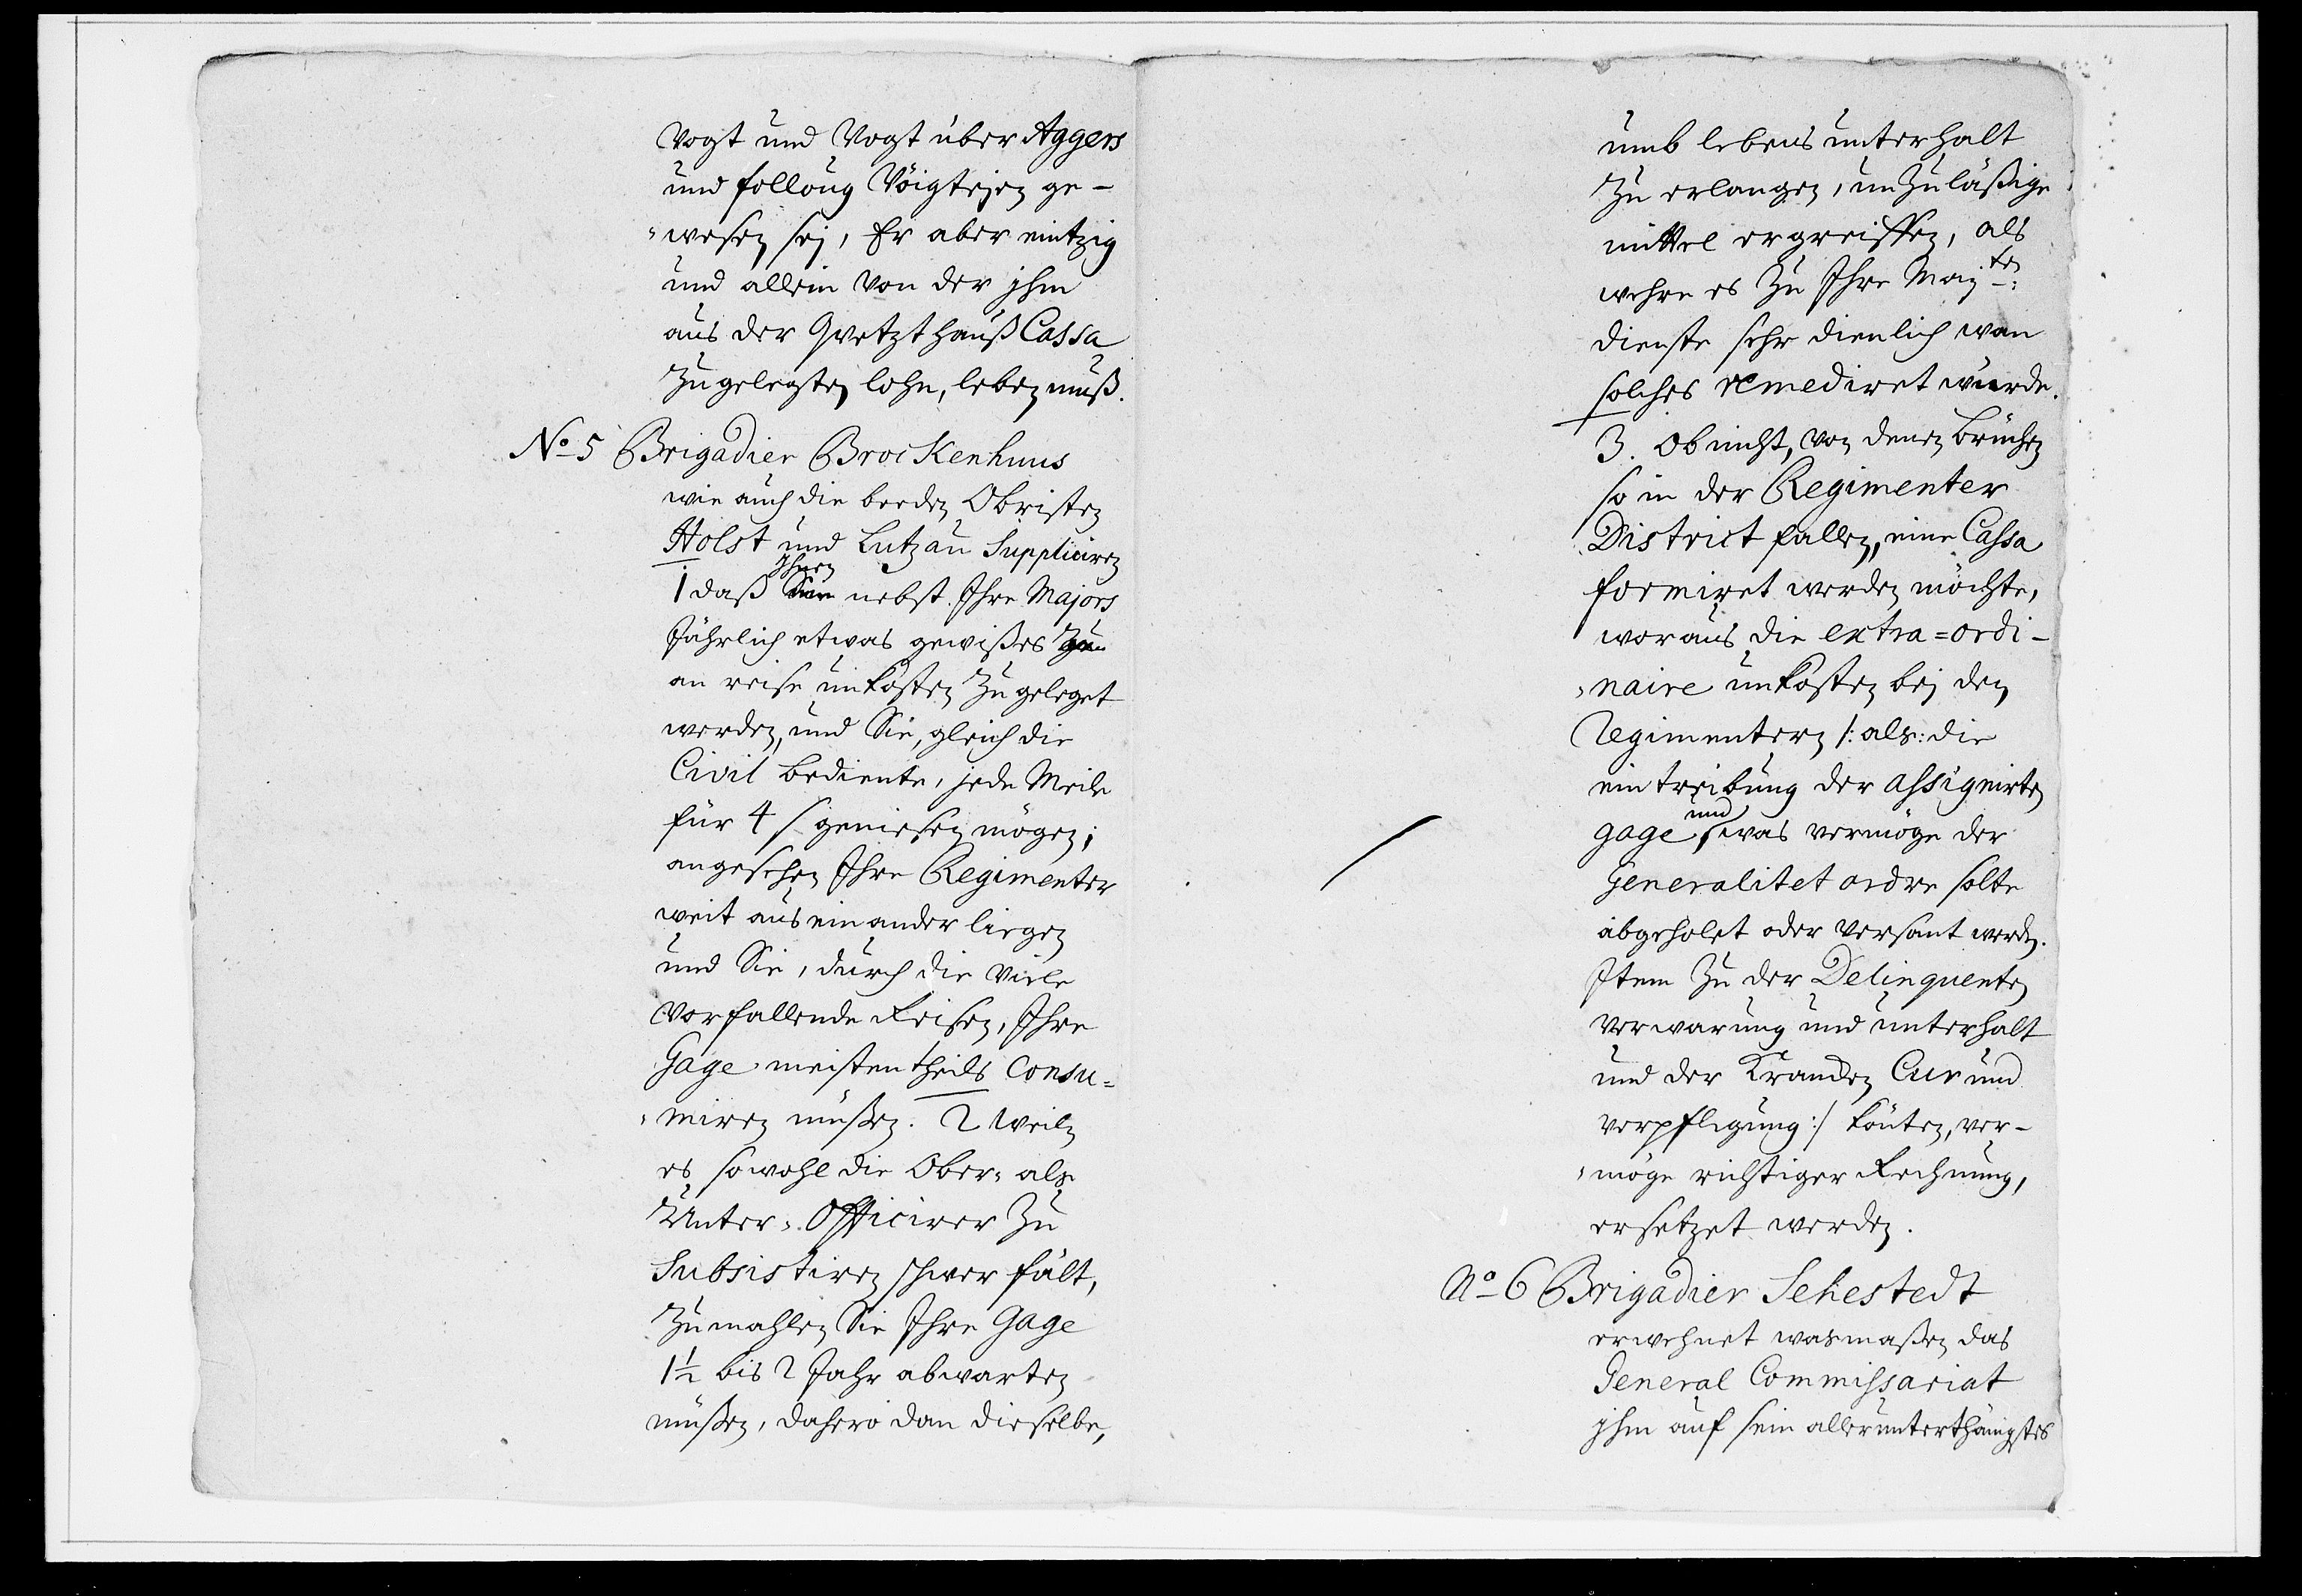 Vogt und Vogt über Aggers
und folloug Vöigtejen ge-
"wesen sej, Er aber eintzig
und allein von der jhm
aus der Qvetzthauß Cassa
zugelegten lohn, leben muß.
No 5 Brigadier Brockenhuus
wie auch die beeden Obristen
Holst und Lutzau Suppliciren
Ihnen
1 daß nebst Ihre Majors
Jährlich etwas gewißes
an reise unkosten zu geleget
werden, und Sie, gleich die
Civil bediente, jede Meile
für 4 s geniesen mögen;
angesehen Ihre Regimenter
weit aus einander liegen
und Sie, durch die viele
vorfallende Reisen, Ihre
Gage meistentheils Consu=
"miren müßen. 2 Weiln
es sowohl die Ober= als
Unter=Officirer zu
Subsistiren schwer fält,
Zumahlen Sie Ihre Gage
1½ bis 2 Jahr abwarten
müßen, dahero dan dieselbe,
umb lebens unterhalt
zu erlangen, unzuläßige
mittel ergreiffen, als
wehre es zu Ihre Maj ten:
dienste sehr dienlich wan
solches remediret würde.
3. Ob nicht, von denen brüchen
so in der Regimenter
District fallen, eine Cassa
formiret werden möchte,
woraus die extra=ordi-
"naire unkosten bej den
Regimentern /: als: die
eintreibung der assignirten
und
gage, was vermöge der
Generalitet ordre solte
abgeholet oder versant werden.
Item zu der Delinquenten
verwarung und unterhalt
und der Krancken Cur und
verpflegung :/ könten, ver-
"möge richtiger Rechnung,
ersetzet werden.
No 6 Brigadier Sehestedt
erwehnet wasmaßen das
General Commissariat
jhm auf sein allerunterthänigstes